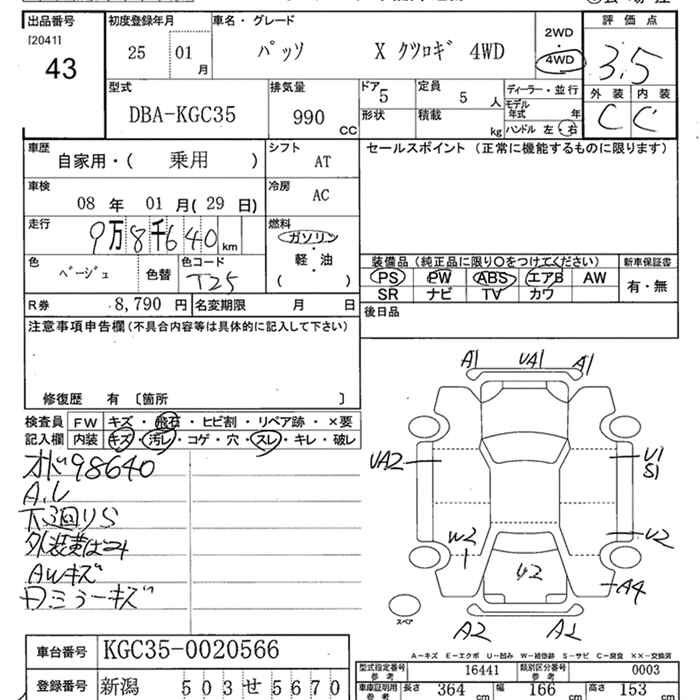 出品番号 初度登録年月 車名・グレード 評価点
[2041] 43
25 01 月
パッソ X クツロギ 4WD
2WD
4WD
3.5
型式 排気量 ドア 定員 ディーラー・並行 外装 内装
DBA-KGC35 990 CC 5 5 人
モデル年式 年
形状 積載 kg ハンドル 左・右
C C
車歴 シフト セールスポイント (正常に機能するものに限ります)
自家用・( 乗用 ) AT
車検 冷房
08 年 01 月( 29 日) AC
走行 燃料
9万8千640 km ガソリン
軽・油
( ・ )
色 色コード
ベージュ 色替 T25
装備品 (純正品に限り○をつけてください) 新車保証書
PS PW ABS エアB AW 有・無
SR ナビ TV カワ
R券 8,790 円 名変期限 月 日
後日品
注意事項申告欄 (不具合内容等は具体的に記入して下さい)
修復歴 有 〔箇所 〕
検査員 FW キズ・飛石・ヒビ割・リペア跡・×要
記入欄 内装 キズ・汚レ・コゲ・穴・スレ・キレ・破レ
オド98640
下廻りS
AWキズ
Dミラーキズ
A1 UA1 A1
UA2 U1
S1
W2 U2
U2 A4
スペア
A2 A2
A-キズ E-エクボ U-凹み W-補修跡 S-サビ C-腐食 XX-交換済
車台番号 KGC35-0020566
型式指定番号 参考 16441 類別区分番号 参考 0003
登録番号 新潟 503 せ 5670
車庫証明用 参考 長さ 364 cm 幅 166 cm 高さ 153 cm